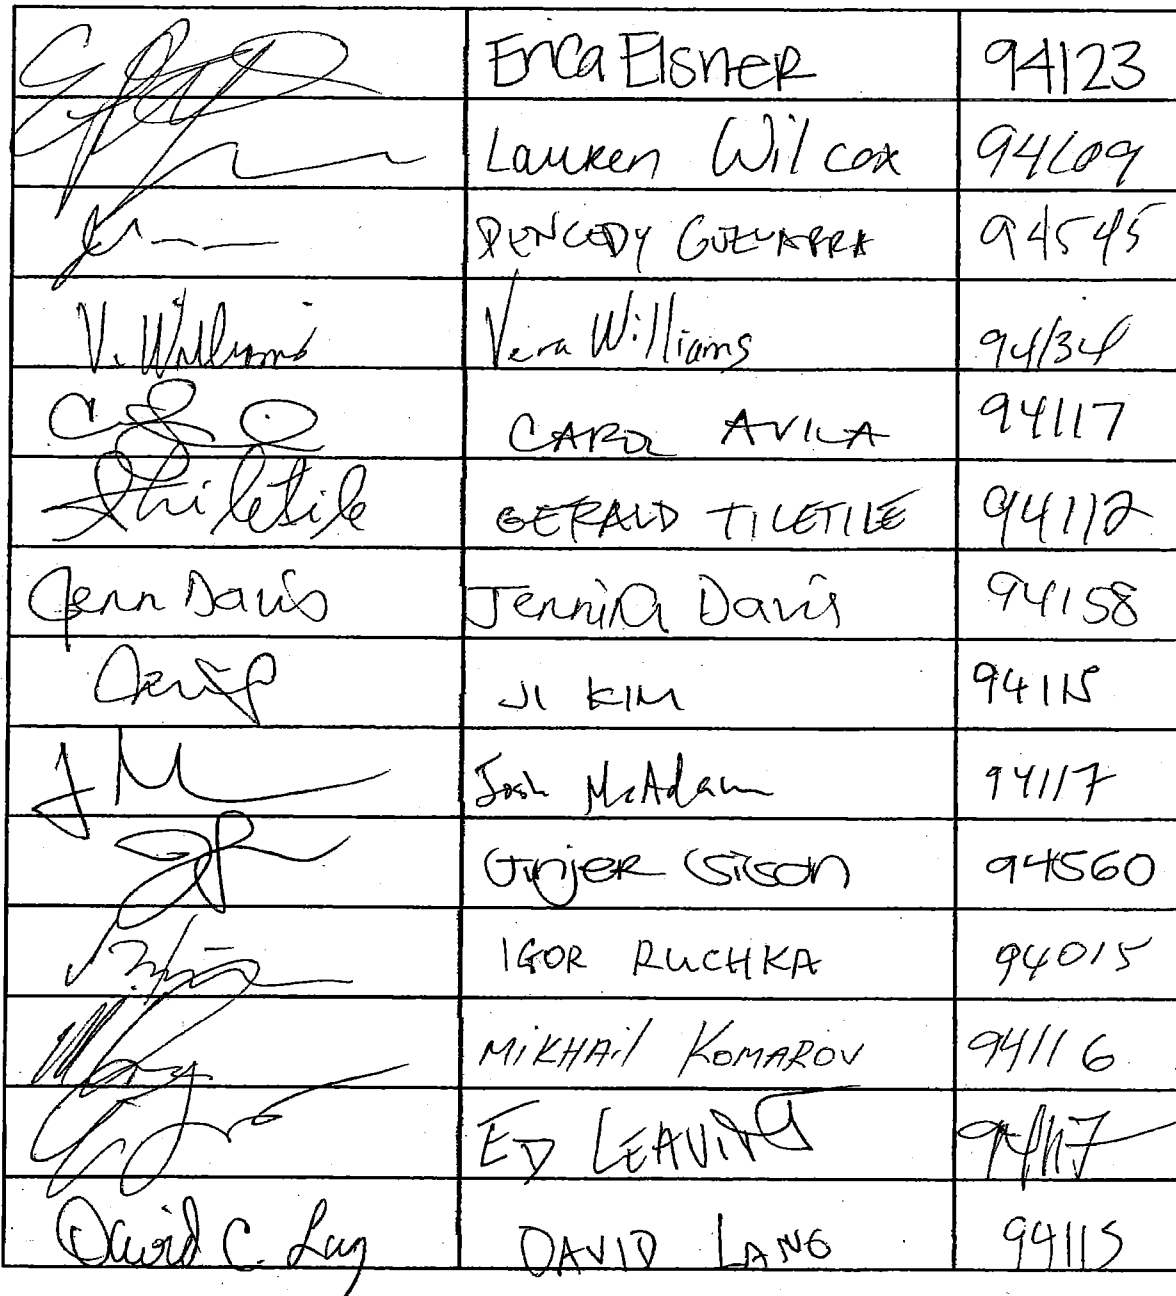 Erica Elsner 94123
Lauren Wilcox 94109
94545
V. Williams Vera Williams 94134
CAROL AVILA 94117
GERALD TILETILE 94112
Jenn Davis Davis 94158
JI KIM 94115
JM Josh McAdam 94117
Ginjer Sison 94560
IGOR RUCHKA 94015
MIKHAil KOMAROV 94116
ED LEAVITT 94117
David C. Lang DAVID LANG 94115